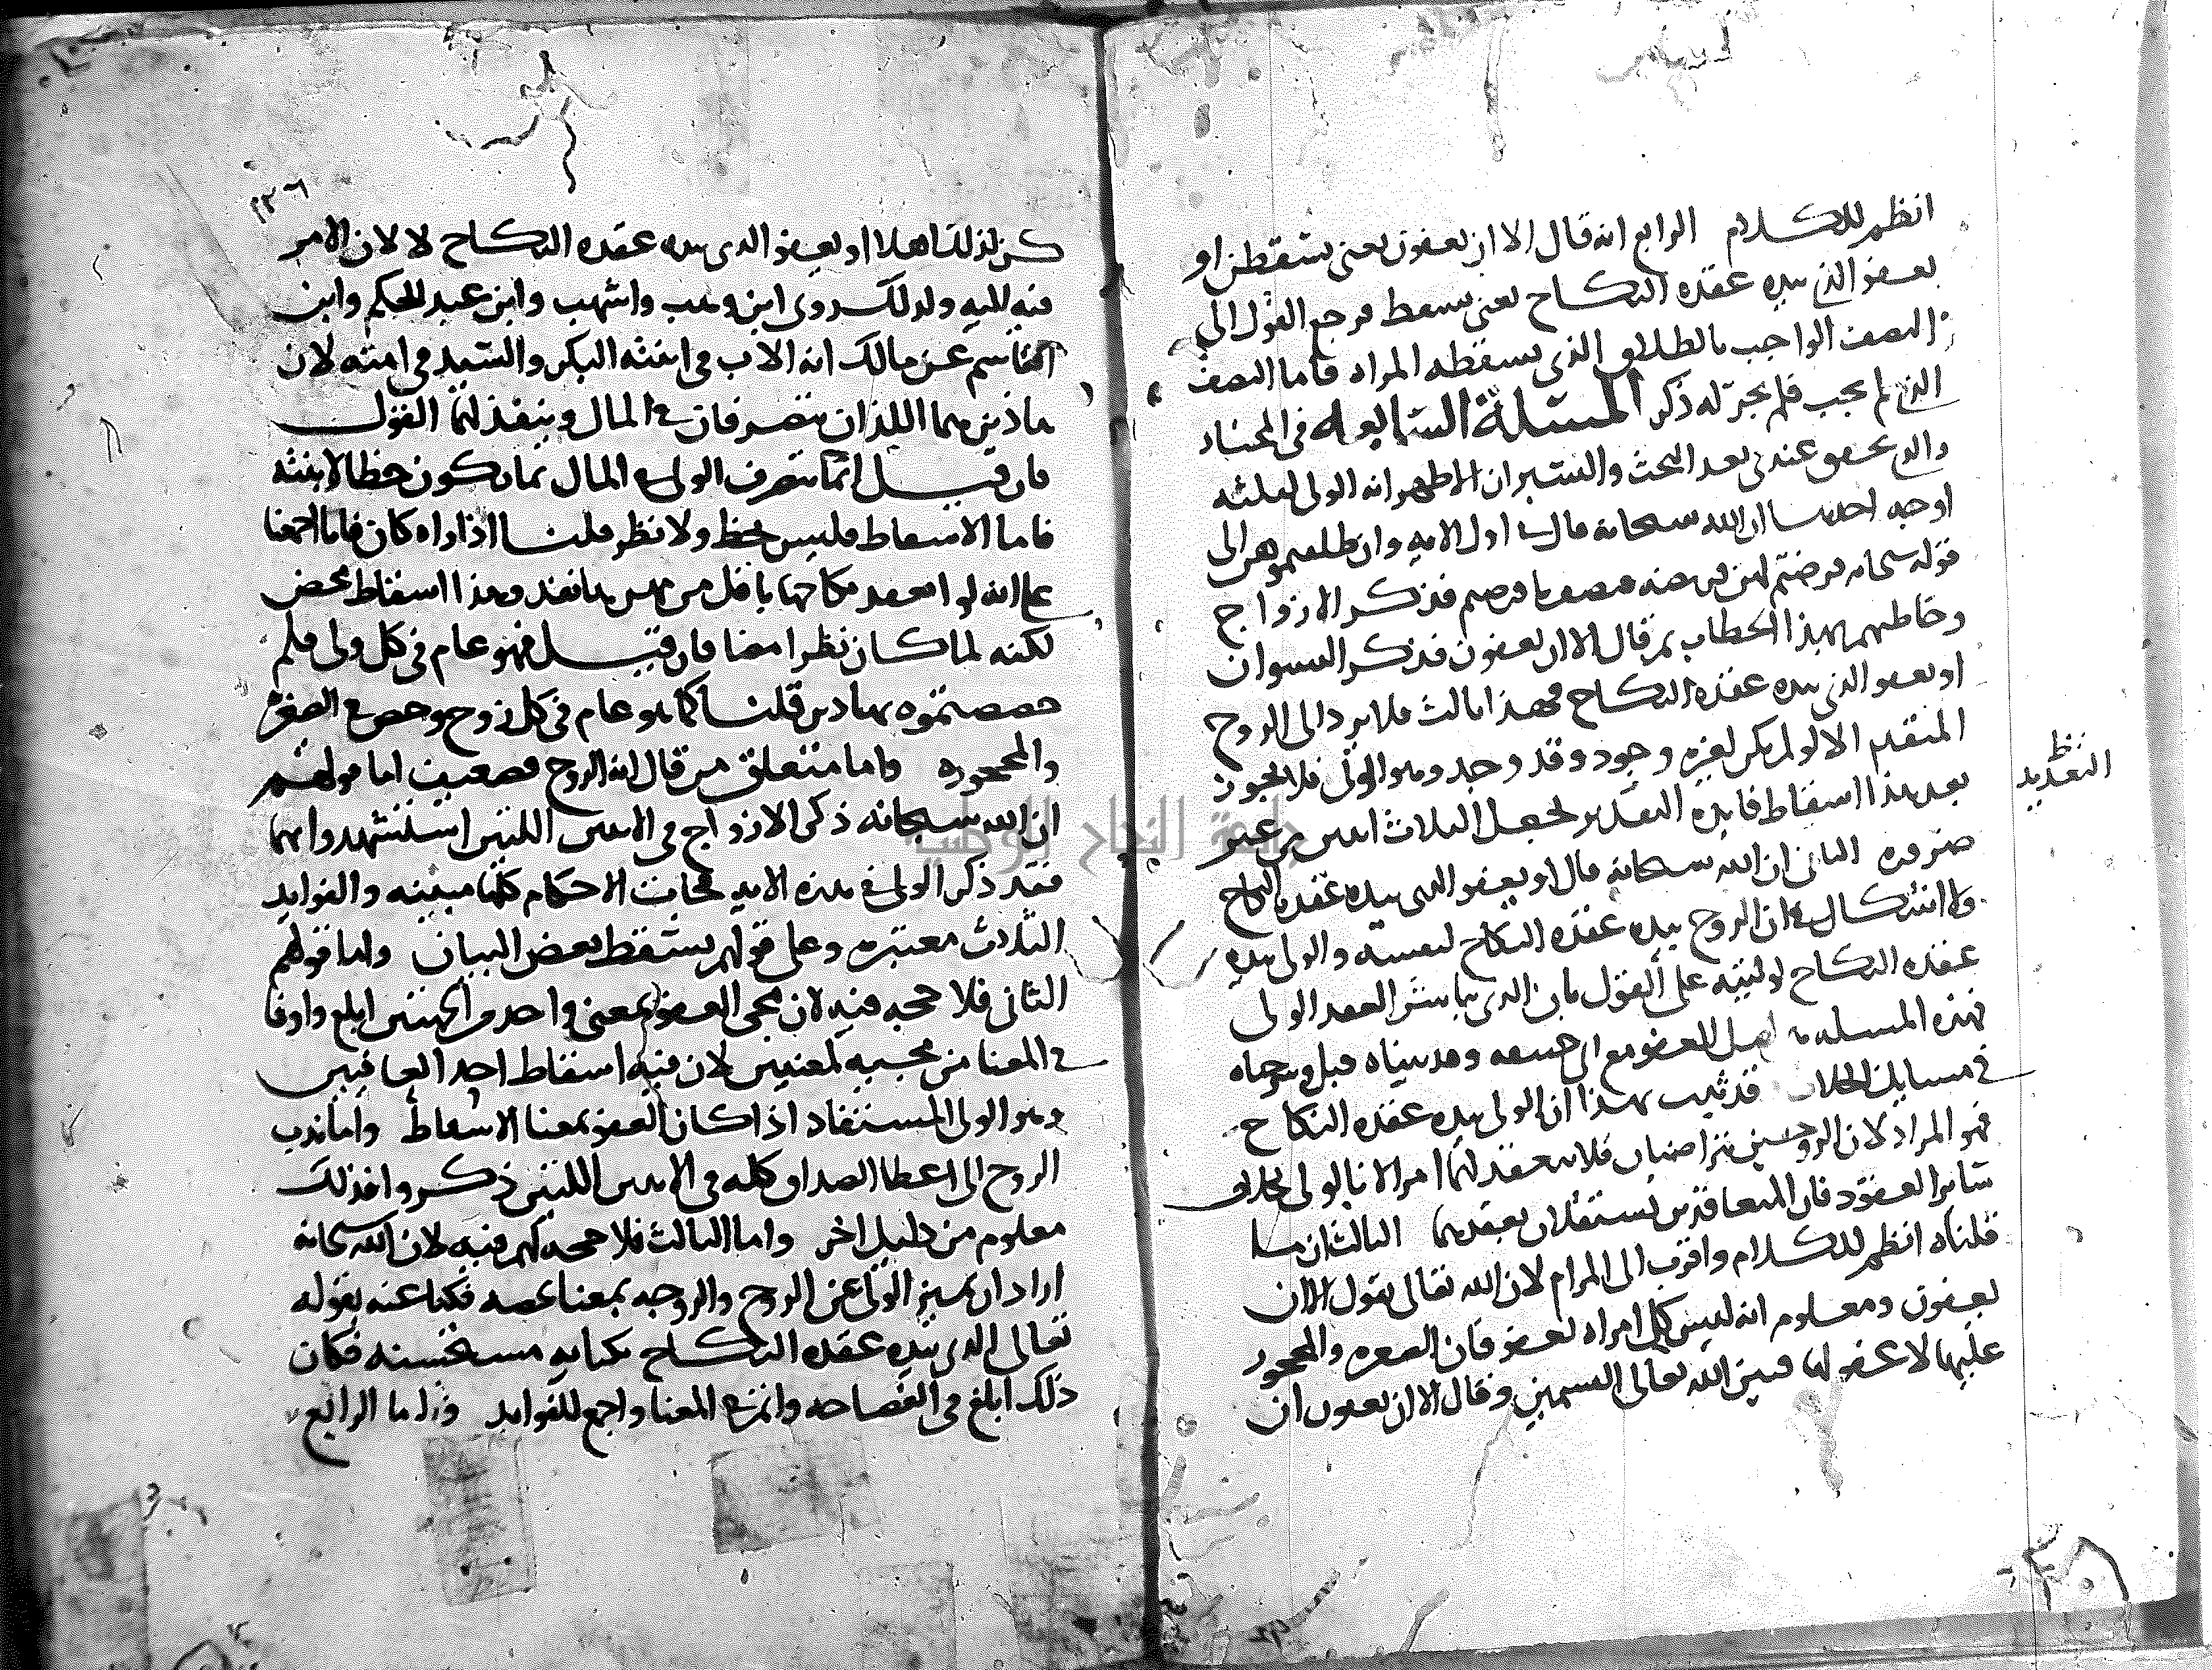 انظم للكلام الرابع انه قال الا ان يعفون يعنى يسقطن او
يعفو الذى بيده عقدة النكاح يعنى يسقط فرجع القول الى
النصف الواجب بالطلاق الذى يسقطه المراه فاما النصف
الذى لم يجب فلم يجر له ذكر المسئلة السابعه فى المختار
والذى تحقق عندى بعد البحث والسبر ان الاظهر انه الولى لثلثه
اوجه احدها ان الله سبحانه قال فى اول الايه وان طلقتموهن الى
قوله سبحانه فرضتم لهن فريضه فنصف ما فرضتم فذكر الازواج
وخاطبهم بهذا الخطاب ثم قال الا ان يعفون فذكر النسوان
او يعفو الذى بيده عقدة النكاح فهذا ثالث فلا يرد الى الزوج
المتقدم الا لو لم يكن لغيره وجود وقد وجد وهو الولى فلا يجوز
بعد هذا اسقاط فايدة التقدير لجعل الثلاث اثنين من غير
التعديد
ضروره الثانى ان الله سبحانه قال او يعفو الذى بيده عقدة النكاح
ولا اشكال فى ان الزوج بيده عقدة النكاح لنفسه والولى بيده
عقدة النكاح لوليته على القول بان الذى يباشر العقد الولى
فهذه المسله هى اصل العفو مع ابى حنيفه وقد بيناه قبل وشرحناه
فى مسايل الخلاف فقد ثبت بهذا ان الولى بيده عقدة النكاح
فهو المراد لان الزوجين يتراضيان فلا ينعقد لهما امر الا بالولى بخلاف
ساير العقود فان المتعاقدين يستقلان بعقدهما الثالث ان ما
قلناه انظم للكلام واقرب الى المرام لان الله تعالى يقول الا ان
يعفون ومعلوم انه ليس كل امراه تعفو فان الصغيره والمحجور
عليها لا عفو لها فبين الله تعالى القسمين وقال الا ان يعفون ان
٢٣٦
كن لذلك اهلا او يعفو الذى بيده عقدة النكاح لا لان الامر
فيه اليه ولذلك روى ابن وهب واشهب وابن عبد الحكم وابن
القاسم عن مالك انه الاب فى ابنته البكر والسيد فى امته لان
هاذين هما اللذان يتصرفان فى المال وينفذ لهما القول
فان قيل انما يتصرف الولى فى المال بما يكون حظا لابنته
فاما الاسقاط فليس بحظ ولا نظر قلنا اذا راه كان فانا اجمعنا
على انه لو انعقد نكاحها باقل من مهر مثلها نفذ وهذا اسقاط محض
لكنه لما كان نظرا مضا فان قيل فهو عام فى كل ولى فلم
خصصتموه بهاذين قلنا كما هو عام فى كل زوج وخص فى الصغيره
والمحجوره واما متعلق من قال انه الزوج فضعيف اما قولهم
ان الله سبحانه ذكر الازواج فى الايتين اللتين استشهدوا بهما
فقد ذكر الولى فى هذه الايه فجات الاحكام كلها مبينه والفوايد
الثلاث معتبره وعلى قولهم يسقط بعض البيان واما قولهم
الثانى فلا حجه فيه لان مجى العفو بمعنى واحد من الجهتين ابلغ واوفا
فى المعنا من مجييه لمعنيين لان فيه اسقاط احد العافيين
وهو الولى المستفاد اذا كان العفو بمعنا الاسقاط واما ندب
الزوج الى اعطا الصداق كله فى الايتين اللتين ذكروا فذلك
معلوم من دليل اخر واما الثالث فلا حجه لهم فيه لان الله سبحانه
اراد ان يميز الولى عن الزوج والزوجه بمعنا يخصه فكنا عنه بقوله
تعالى الذى بيده عقدة النكاح بكنايه مستحسنه فكان
ذلك ابلغ فى الفصاحه واتم فى المعنا واجمع للفوايد واما الرابع